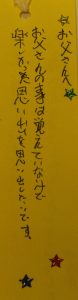 お父さんへ
お父さんの事は覚えていないけど
楽しかった思い出を思い出したいです。